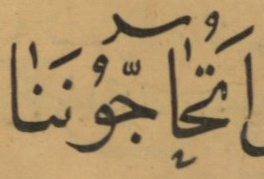 اَتُحَٓاجُّونَنَا